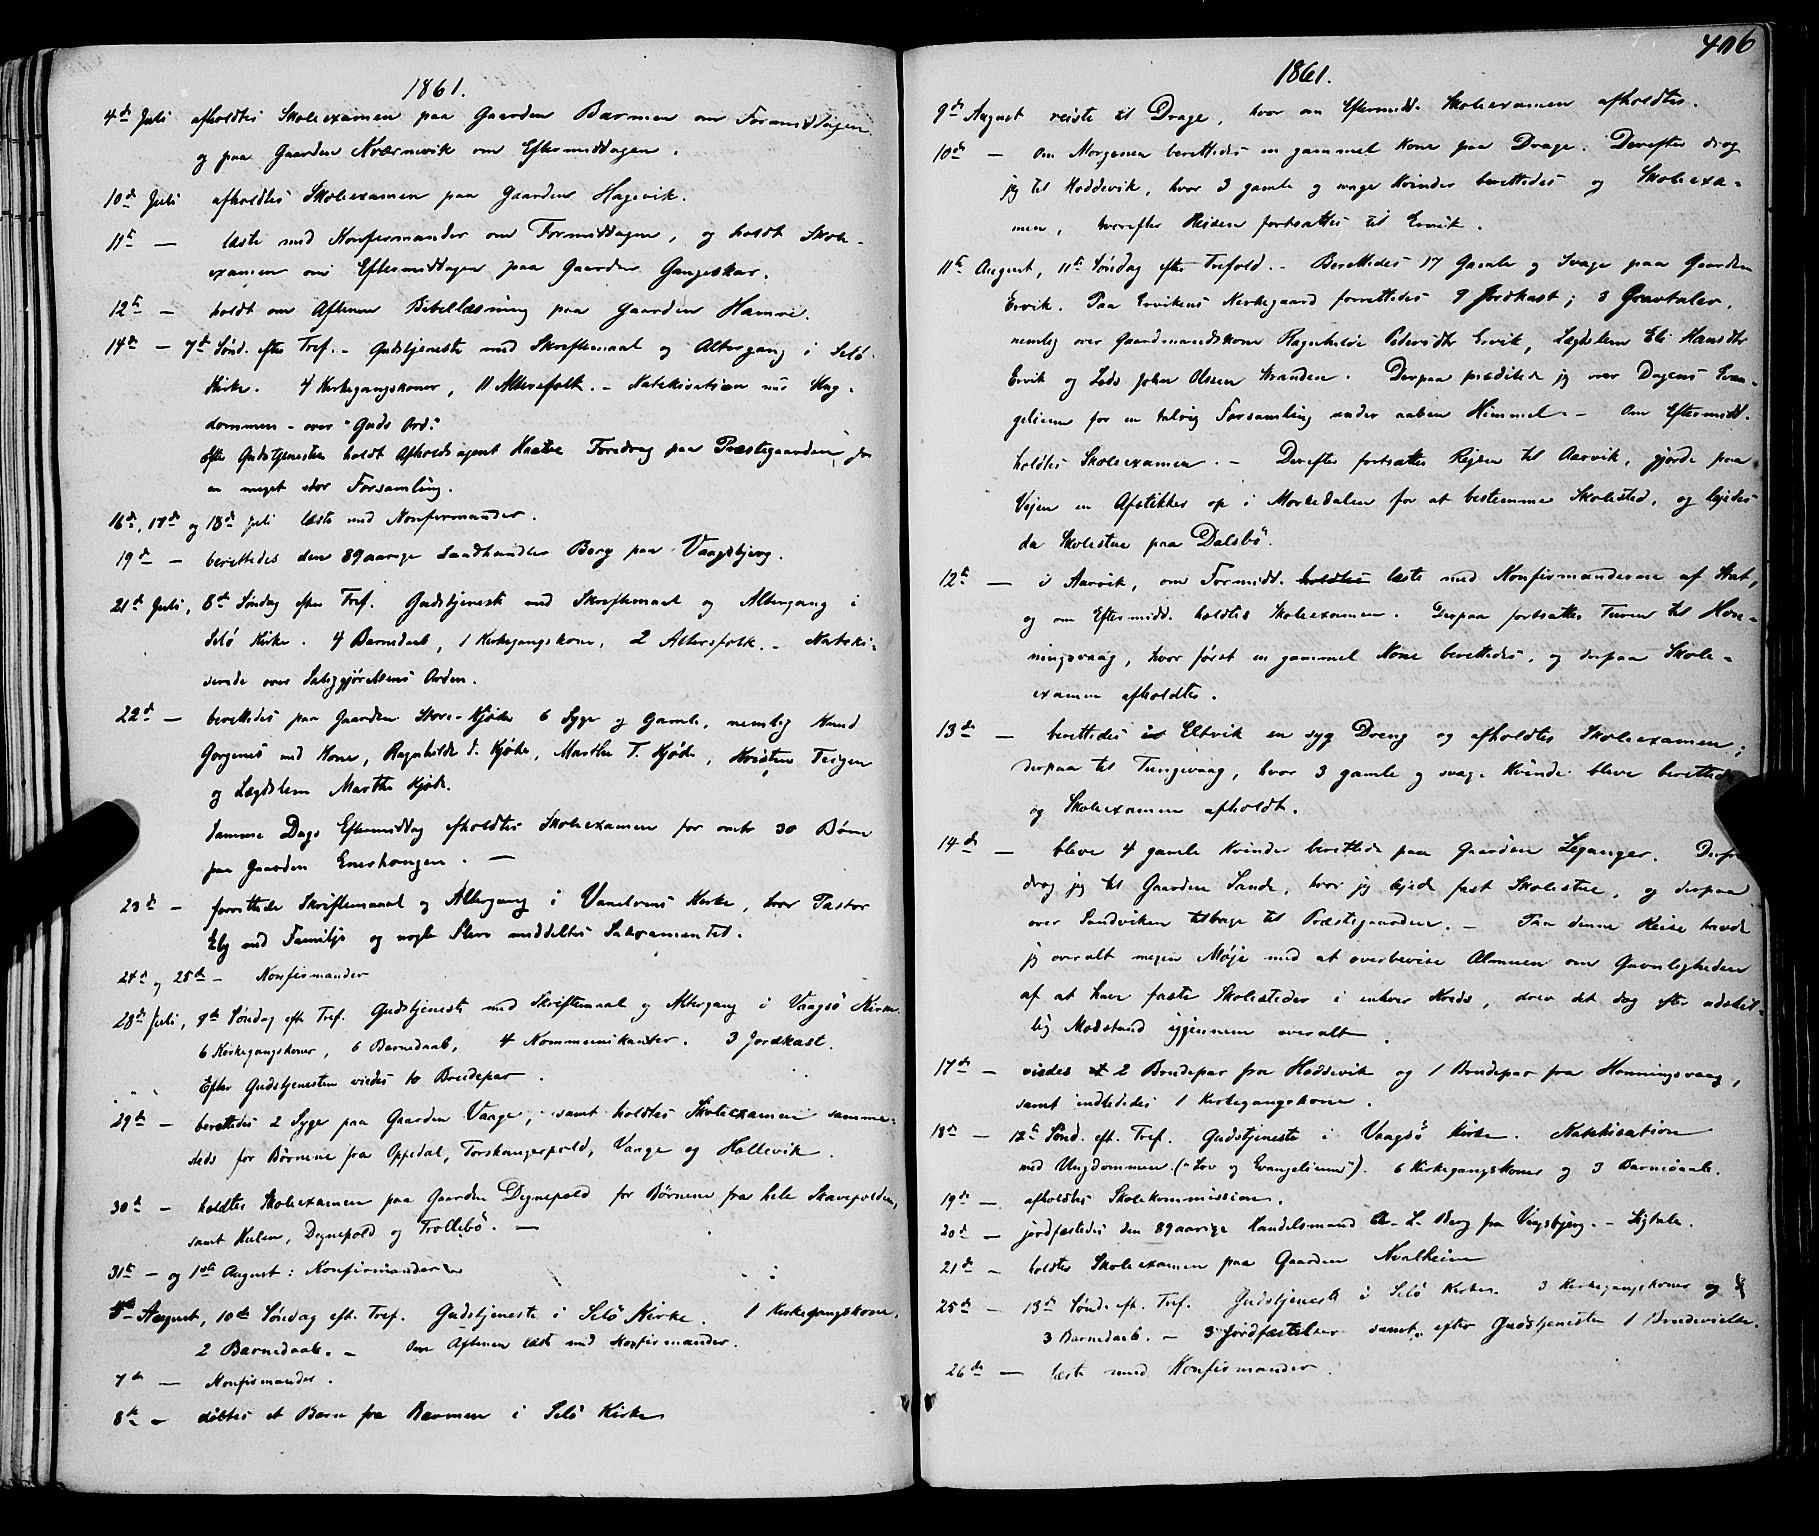 1861.
4de Juli afholdtes Skoleexamen paa Gaarden Barmen om Formiddagen
og paa Gaarden Nærnevik om Eftermiddagen.
10de Juli afholdtes Skoleexamen paa Gaarden Hagevik.
11te — læste med Konfirmander om Formiddagen, og holdt Skole-
examen om Eftermiddagen paa Gaarden Gangeskar.
12te — holdt om Aftenen Bibellæsning paa Gaarden Hamre.
14de — 7de Sönd. efter Tref. - Gudstjeneste med Skriftemaal og Altergang i Selö
Kirke. 4 Kirkegangskoner, 11 Altersfolk. - Katekisation med Ung-
dommen - over "Guds Ord."
Efter Gudstjenesten holdt Afholdsagent Foredrag paa Præstegaarden for
en meget stor Forsamling.
16de, 17de og 18de Juli læste med Konfirmander.
19de — berettedes den 89aarige Landhandler Berg paa Vaagsbjerg.
21de Juli, 8de Söndag efter Tref. Gudstjeneste med Skriftemaal og Altergang i
Selö Kirke. 4 Barnedaab, 1 Kirkegangskone, 2 Altersfolk. - Kateki-
serede over Saliggjörelsens Orden.
22de — berettedes paa Gaarden Store-Kjöde 6 Syge og Gamle, nemlig Knud
Gorgenes med Kone, Ragnhilde d. Kjöde, Marthe T. Kjöde, Kristen Teigen
og Lægdslem Marthe Kjöde.
Samme Dags Eftermiddag afholdtes Skoleexamen for omtr 30 Börn
paa Gaarden Enerhougen. —
23de — forrettede Skriftemaal og Altergang i Vanelvens Kirke, hvor Pastor
Ely med Familje og nogle Flere meddeltes Sakramentet.
24de og 25de - Konfirmander
28de Juli, 9de Söndag eft. Tref. Gudstjeneste med Skriftemaal og Altergang i Vaagsö Kirke.
6 Kirkegangskoner, 6 Barnedaab, 4 Kommunikanter. 3 Jordkast.
Efter Gudstjenesten viedes to Brudepar.
29de — berettedes 2 Syge paa Gaarden Vaage, samt holdtes Skoleexamen samme-
steds for Börnene fra Oppedal, Torskangerpold, Vaage og Hallevik.
30de — holdtes Skoleexamen paa Gaarden Degnepold for Börnene fra hele Skavepolden,
samt Hulen, Degnepold og Trollebö. —
31te — og 1ste August: Konfirmander
August, 10de Söndag eft. Tref. Gudstjeneste i Selö Kirke. 1 Kirkegangskone.
2 Barnedaab. - Om Aftenen læste med Konfirmander.
7de — Konfirmander.
8de — döbtes et Barn fra Barmen i Selö Kirke
406
1861.
9de August reiste til Drage, hvor om Eftermidd. Skoleexamen afholdtes.
10de — Om Morgenen berettedes en gammel Kone paa Drage. Derefter drog
jeg til Hoddevik, hvor 3 gamle og svage Kvinder berettedes og Skoleexa-
men, hvorefter Reisen fortsattes til Ervik.
11te August, 11te Söndag efter Trefold. - Berettedes 17 Gamle og Svage paa Gaarden
Ervik. Paa Ervikens Kirkegaard forrettedes 9 Jordkast; 3 Gravtaler,
nemlig over Gaardmandskone Ragnhilde Pedersdtr Ervik, Lægdslem Eli Hansdtr
Ervik og Lods John Olsen Stranden. Derpaa prædikede jeg over Dagens Evan-
gelium for en talrig Forsamling under aaben Himmel. - Om Eftermidd.
holdtes Skoleexamen. - Derefter fortsattes Rejsen til Aarvik, gjorde paa
Vejen en Afstikker op i Morkedalen for at bestemme Skolested, og lejedes
da Skolestue paa Dalsbö.
12te — i Aarvik, om Formidd. holdtes læste med Konfirmanderne af Stat,
og om Eftermidd. holdtes Skoleexamen. Derpaa fortsattes Turen til Hon-
ningsvaag, hvor först en gammel Kone berettedes, og derpaa Skole-
examen afholdtes.
13de — berettedes i Eltvik en syg Dreng og afholdtes Skoleexamen;
derpaa til Tungevaag, hvor 3 gamle og svage Kvinder bleve berettede
og Skoleexamen afholdt.
14de — bleve 4 gamle Kvinder berettede paa Gaarden Leganger. Derfra
drog jeg til Gaarden Sande, hvor jeg lejede fast Skolestue, og derpaa
over Sandviken tilbage til Præstegaarden. - Paa denne Reise havde
jeg overalt megen Möje med at overbevise Almuen om Gavnligheden
af at have faste Skolesteder i enhver Kreds, drev det dog efter adskil-
lig Modstand igjennem overalt.
17de — viedes 2 Brudepar fra Hoddevik og 1 Brudepar fra Honningsvaag,
samt indlededes 1 Kirkegangskone.
18de — 12te Sönd. eft. Tref. Gudstjeneste i Vaagsö Kirke. Katekisation
med Ungdommen ("Lov og Evangelium"). 6 Kirkegangskoner og 3 Barnedaab.
19de — afholdtes Skolekommission.
20de — jordfæstedes den 89aarige Handelsmand A. L. Berg fra Vaagsbjerg. - Ligtale.
21de — holdtes Skoleexamen paa Gaarden Kvalheim
25de — 13de Sönd. eft. Tref. Gudstjeneste i Selö Kirke. 3 Kirkegangskoner og
3 Barnedaab. - 3 Jordfæstelser samt efter Gudstjenesten 1 Brudevielse.
26de — læste med Konfirmander.